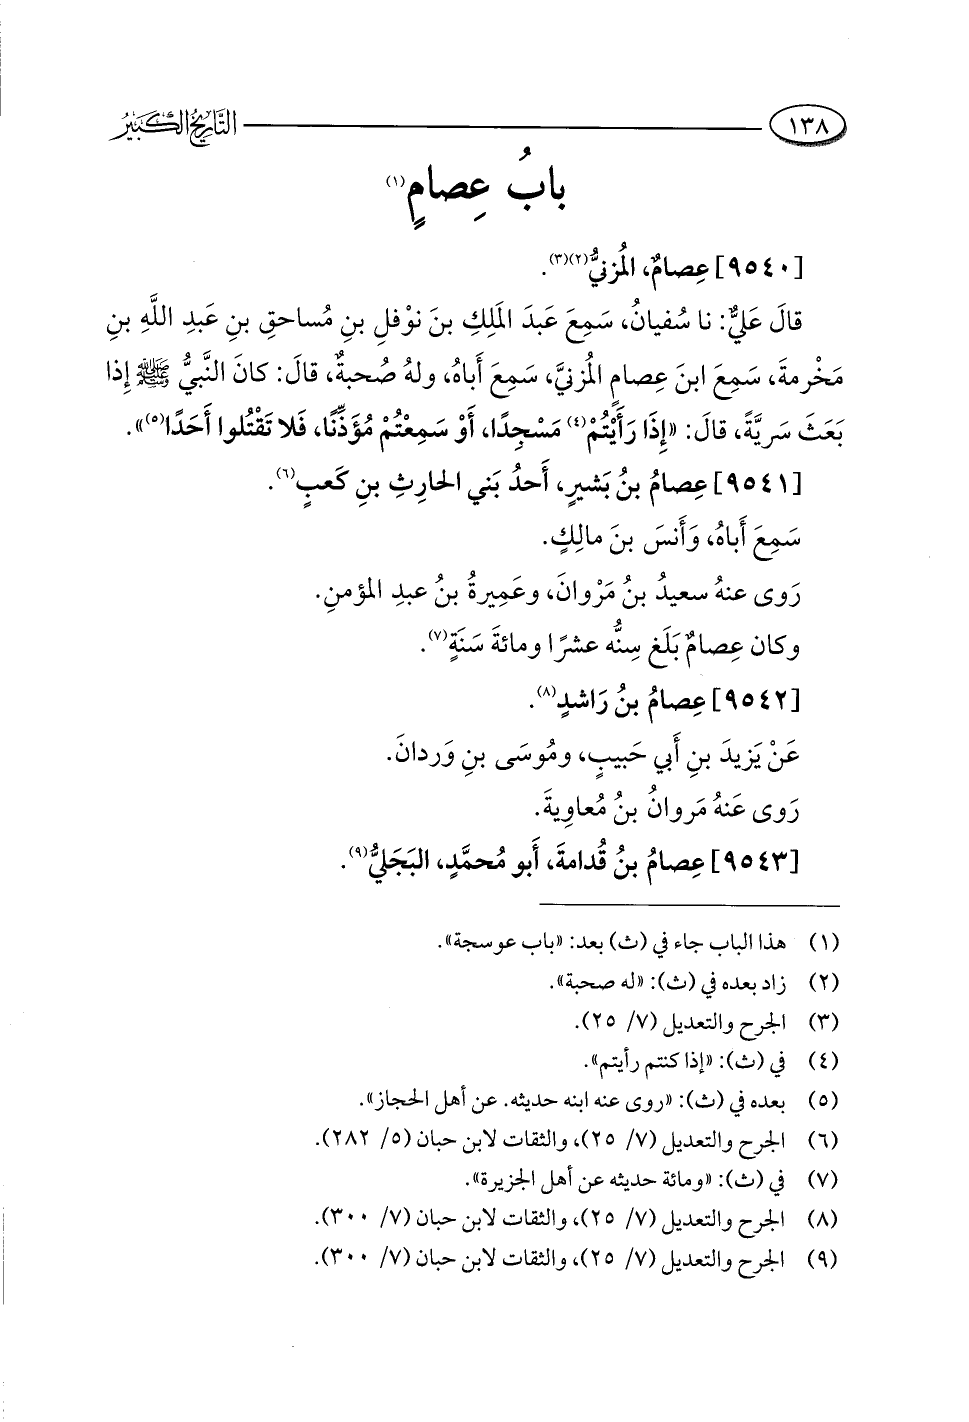 ١٣٨ التاريخ الكبير
بابُ عِصامٍ(١)
[٩٥٤٠] عِصامٌ، المُزنيُّ(٢)(٣).
قالَ عَليٌّ: نا سُفيانُ، سَمِعَ عَبدَ المَلِكِ بنَ نوْفلِ بنِ مُساحقِ بنِ عَبدِ اللَّهِ بنِ
مَخْرمةَ، سَمِعَ ابنَ عِصامٍ المُزنيَّ، سَمِعَ أَباهُ، ولهُ صُحبةٌ، قالَ: كانَ النَّبيُّ ﷺ إِذا
بَعَثَ سَريَّةً، قالَ: «إِذَا رَأَيْتُمْ(٤) مَسْجِدًا، أَوْ سَمِعْتُمْ مُؤَذِّنًا، فَلا تَقْتُلوا أَحَدًا(٥)».
[٩٥٤١] عِصامُ بنُ بَشيرٍ، أَحدُ بَني الحارِثِ بنِ كَعبٍ(٦).
سَمِعَ أَباهُ، وَأَنسَ بنَ مالِكٍ.
رَوى عنهُ سعيدُ بنُ مَرْوانَ، وعَمِيرةُ بنُ عبدِ المؤمنِ.
وكان عِصامٌ بَلَغ سِنُّه عشرًا ومائةَ سَنَةٍ(٧).
[٩٥٤٢] عِصامُ بنُ رَاشدٍ(٨).
عَنْ يَزيدَ بنِ أَبي حَبيبٍ، ومُوسَى بنِ وَردانَ.
رَوى عَنهُ مَروانُ بنُ مُعاوِيةَ.
[٩٥٤٣] عِصامُ بنُ قُدامةَ، أَبو مُحمَّدٍ، البَجَليُّ(٩).
(١) هذا الباب جاء في (ث) بعد: «باب عوسجة».
(٢) زاد بعده في (ث): «له صحبة».
(٣) الجرح والتعديل (٧/ ٢٥).
(٤) في (ث): «إذا كنتم رأيتم».
(٥) بعده في (ث): «روى عنه ابنه حديثه. عن أهل الحجاز».
(٦) الجرح والتعديل (٧/ ٢٥)، والثقات لابن حبان (٥/ ٢٨٢).
(٧) في (ث): «ومائة حديثه عن أهل الجزيرة».
(٨) الجرح والتعديل (٧/ ٢٥)، والثقات لابن حبان (٧/ ٣٠٠).
(٩) الجرح والتعديل (٧/ ٢٥)، والثقات لابن حبان (٧/ ٣٠٠).